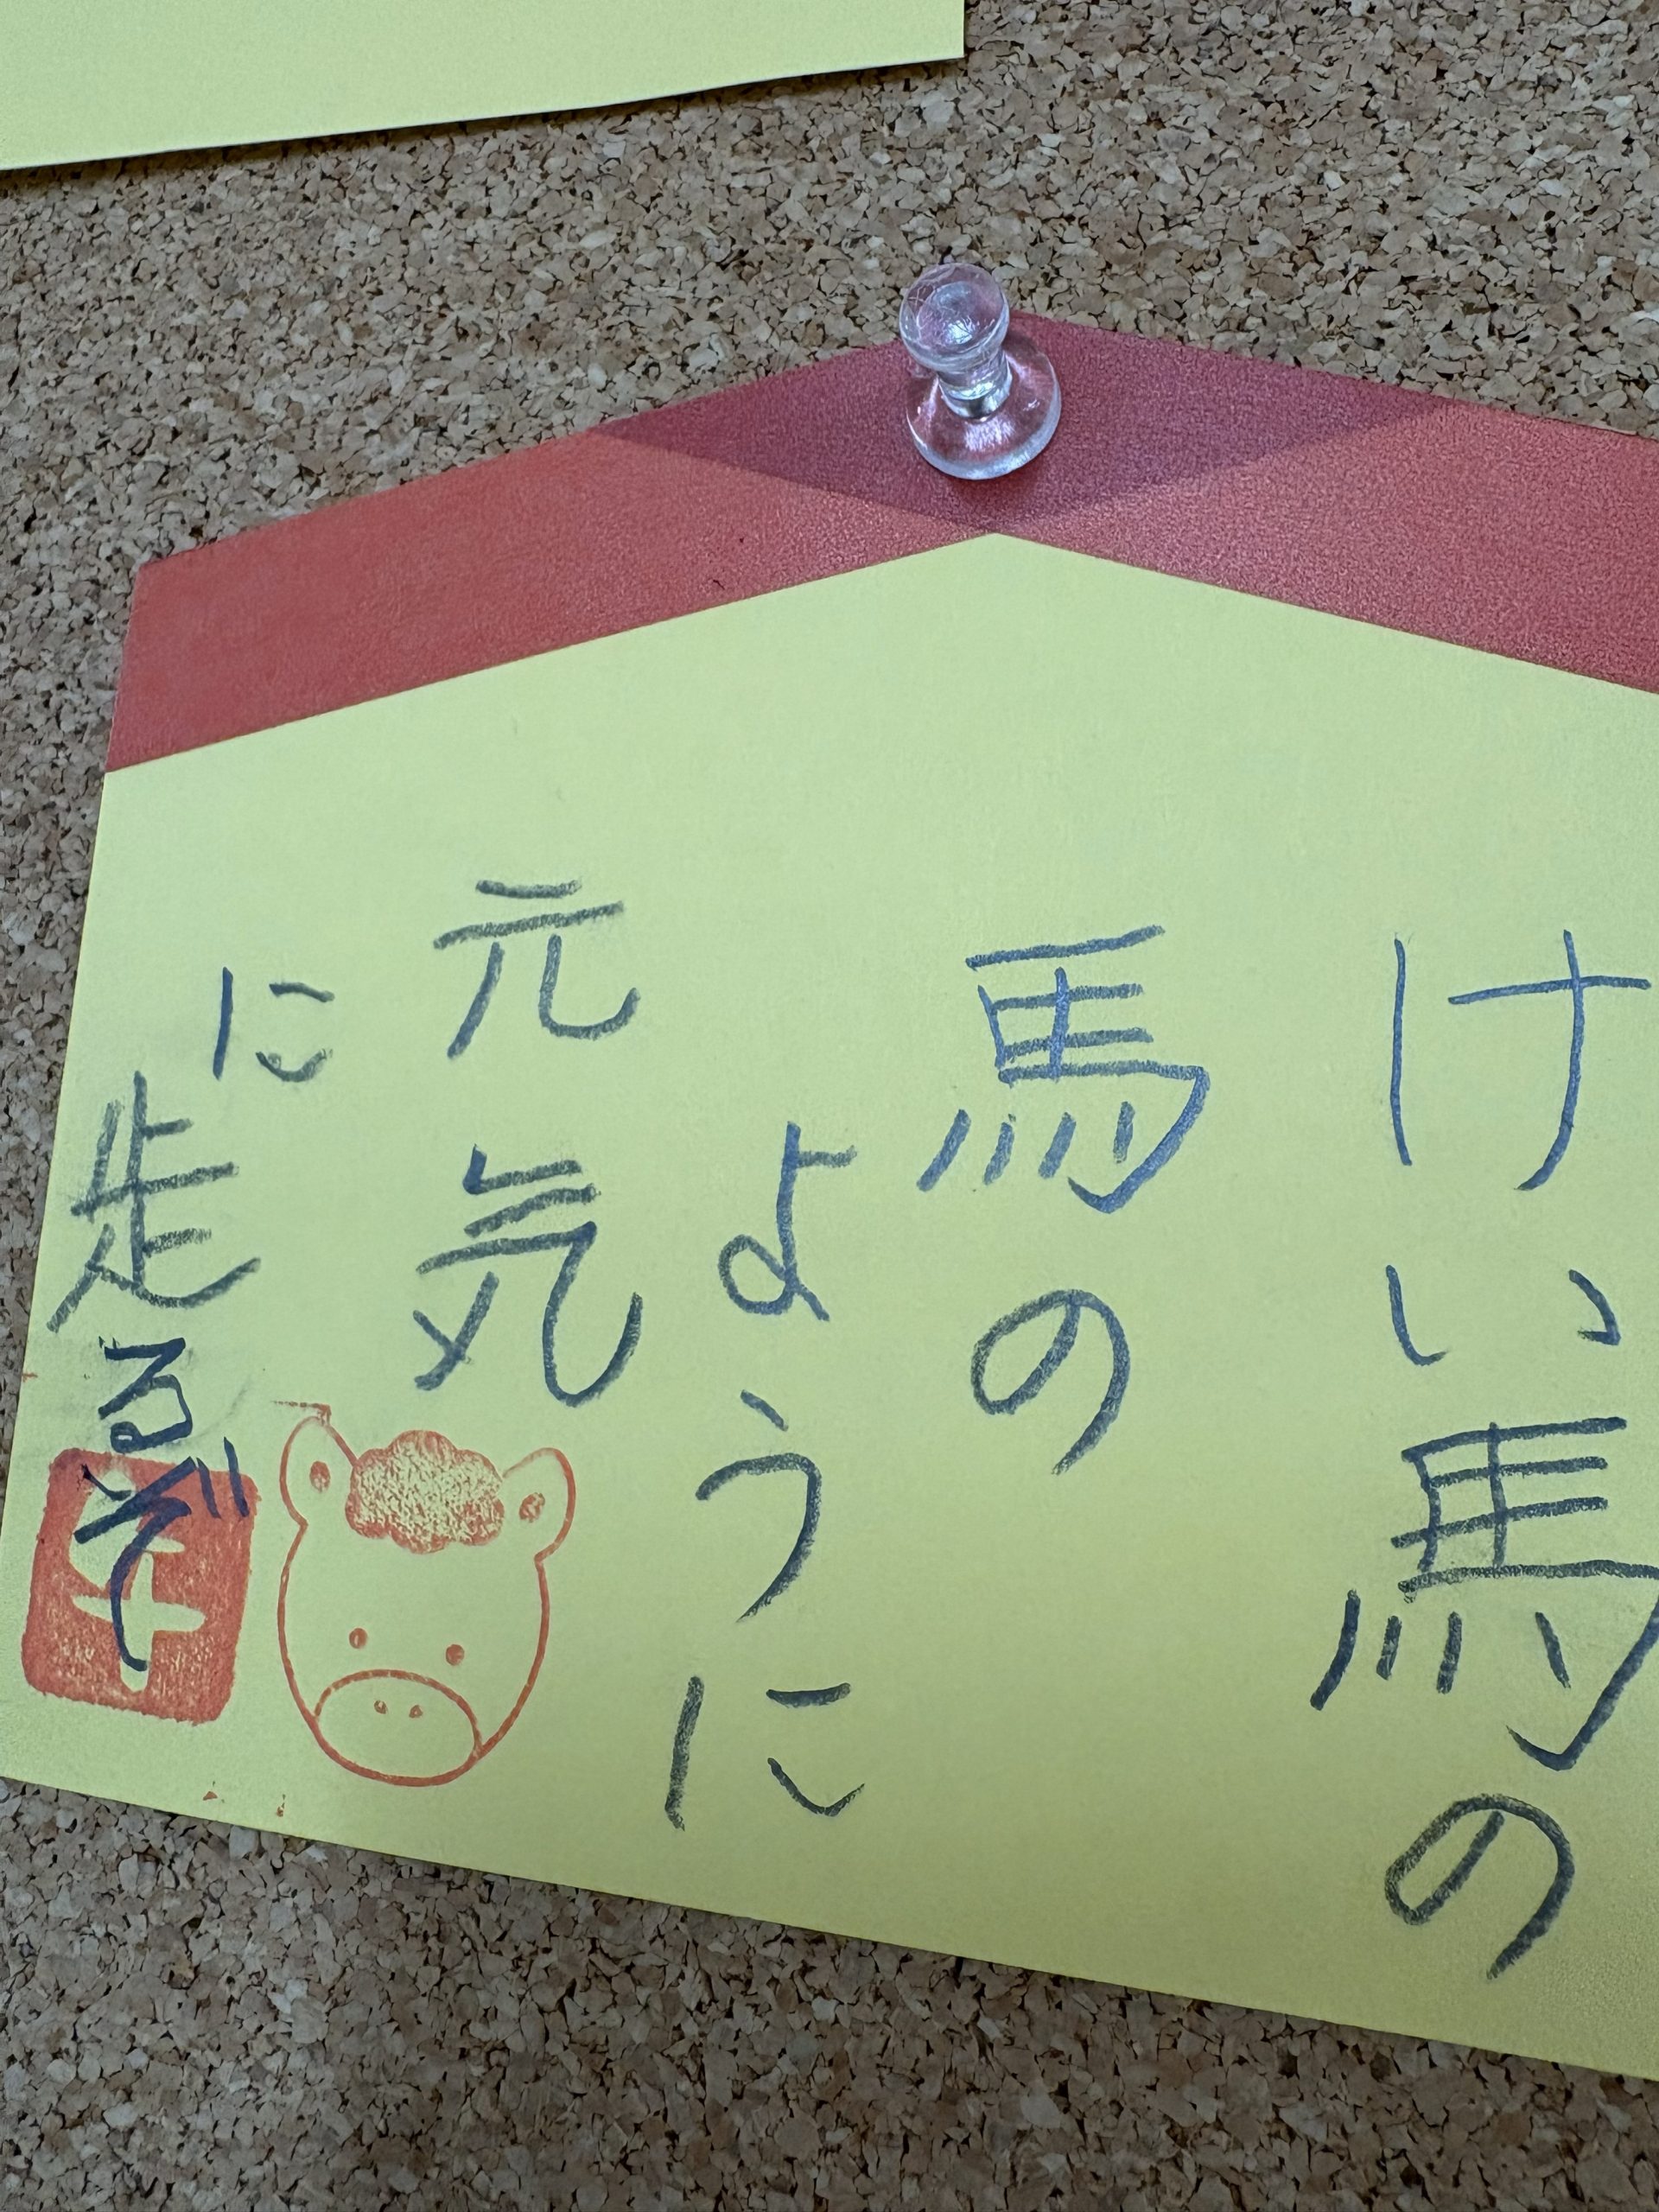 けい馬の
馬の
ように
元気
に
走るぞ